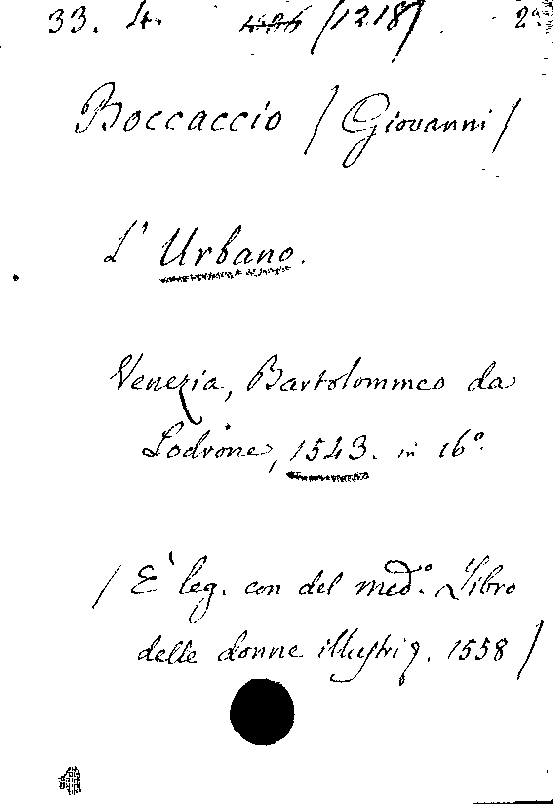 33. 4. (1218) 2º
Boccaccio (Giovanni)
L' Urbano.
Venezia, Bartolommeo da
Lodrone, 1543. in 16º.
(E' leg. con del med.º Libro
delle donne illustri. 1558)